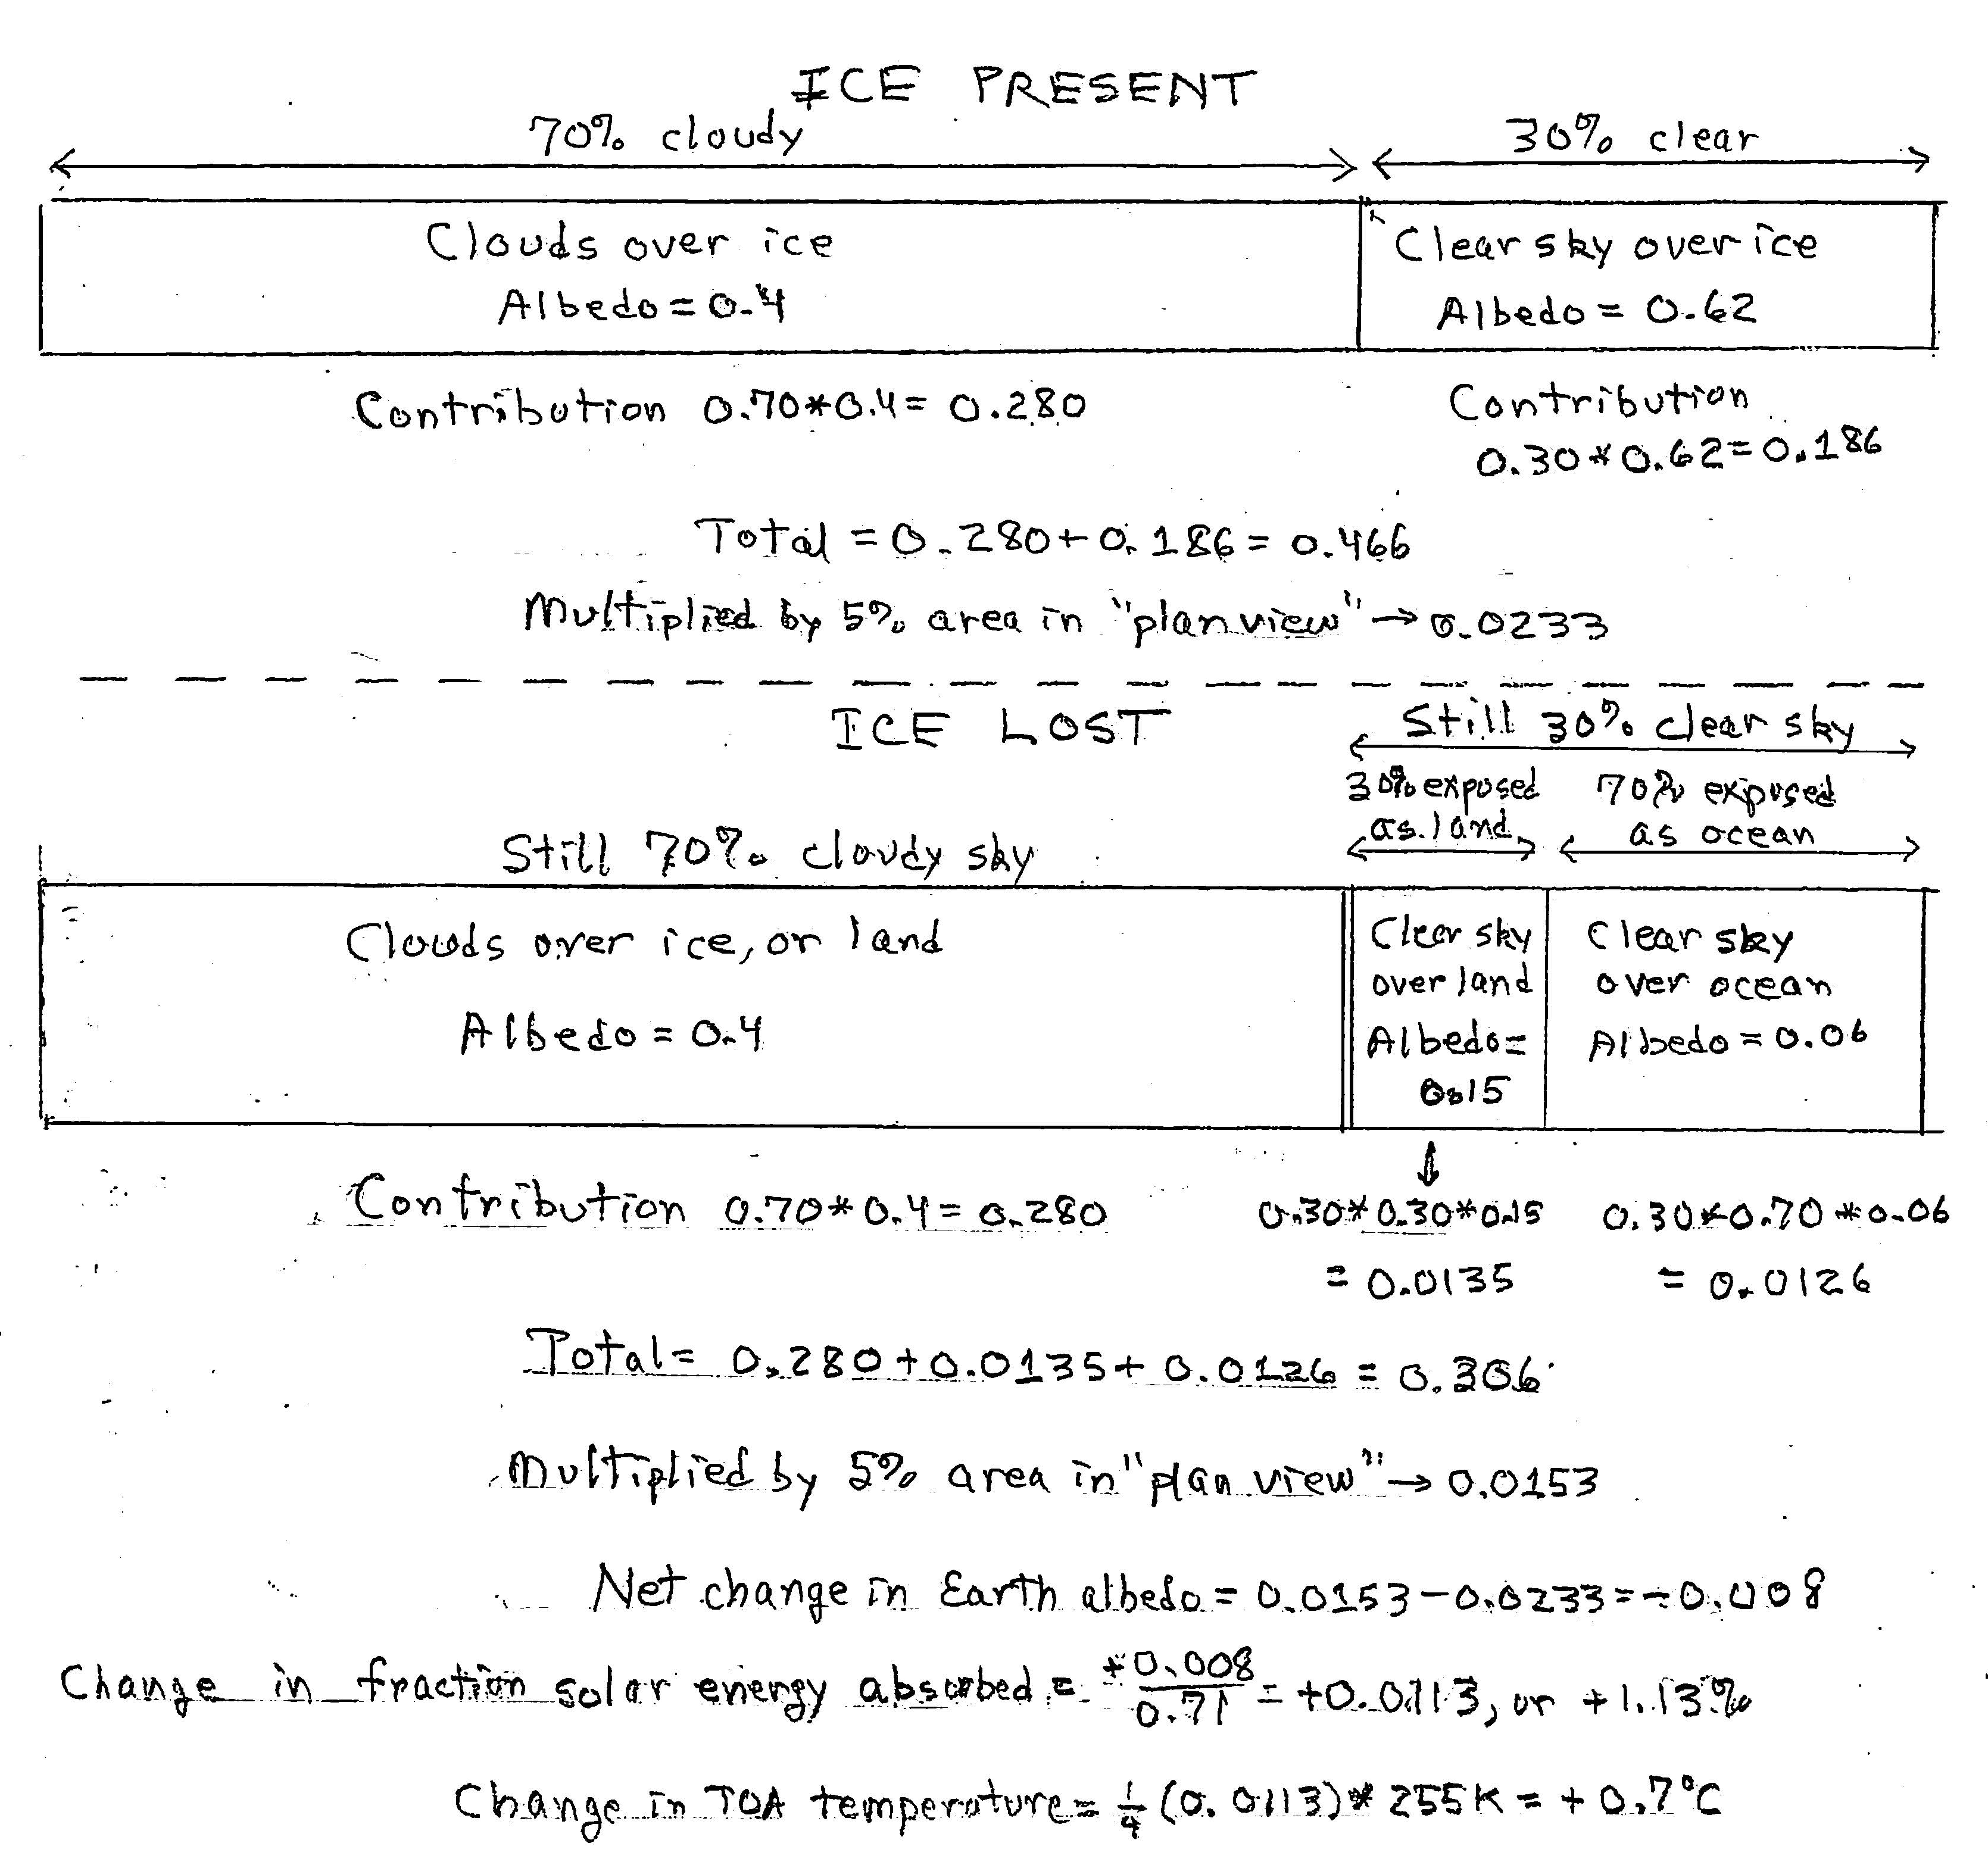 ICE PRESENT
70% cloudy
30% clear
Clouds over ice
Albedo = 0.4
Clear sky over ice
Albedo = 0.62
Contribution 0.70*0.4 = 0.280
Contribution
0.30*0.62=0.186
Total = 0.280+0.186 = 0.466
Multiplied by 5% area in "plan view" → 0.0233
ICE LOST
Still 30% clear sky
30% exposed
as land
70% exposed
as ocean
Still 70% cloudy sky
Clouds over ice, or land
Albedo = 0.4
Clear sky
over land
Albedo=
0.15
Clear sky
over ocean
Albedo = 0.06
Contribution 0.70*0.4 = 0.280
0.30*0.30*0.15
= 0.0135
0.30*0.70*0.06
= 0.0126
Total = 0.280+0.0135+0.0126 = 0.306
Multiplied by 5% area in "plan view" → 0.0153
Net change in Earth albedo = 0.0153-0.0233=-0.008
Change in fraction solar energy absorbed = +0.008/0.71 = +0.0113, or +1.13%
Change in TOA temperature = 1/4 (0.0113)* 255K = +0.7°C